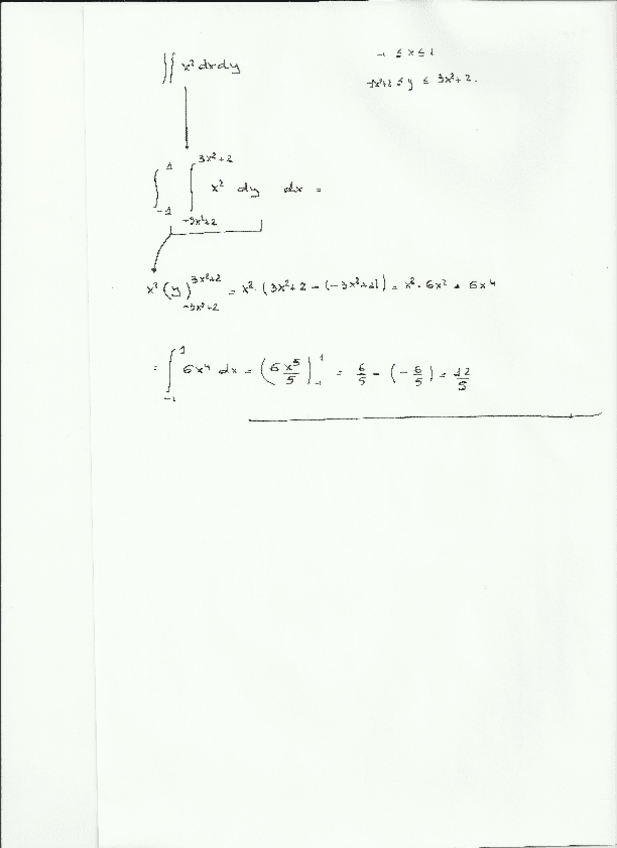 ∬ x² dx dy -1 ≤ x ≤ 1
-3x²+2 ≤ y ≤ 3x²+2.
∫_{-1}^{1} ∫_{-3x²+2}^{3x²+2} x² dy dx =
x² (y)_{-3x²+2}^{3x²+2} = x² · (3x²+2 - (-3x²+2)) = x² · 6x² = 6x⁴
= ∫_{-1}^{1} 6x⁴ dx = (6 x⁵/5)_{-1}^{1} = 6/5 - (-6/5) = 12/5